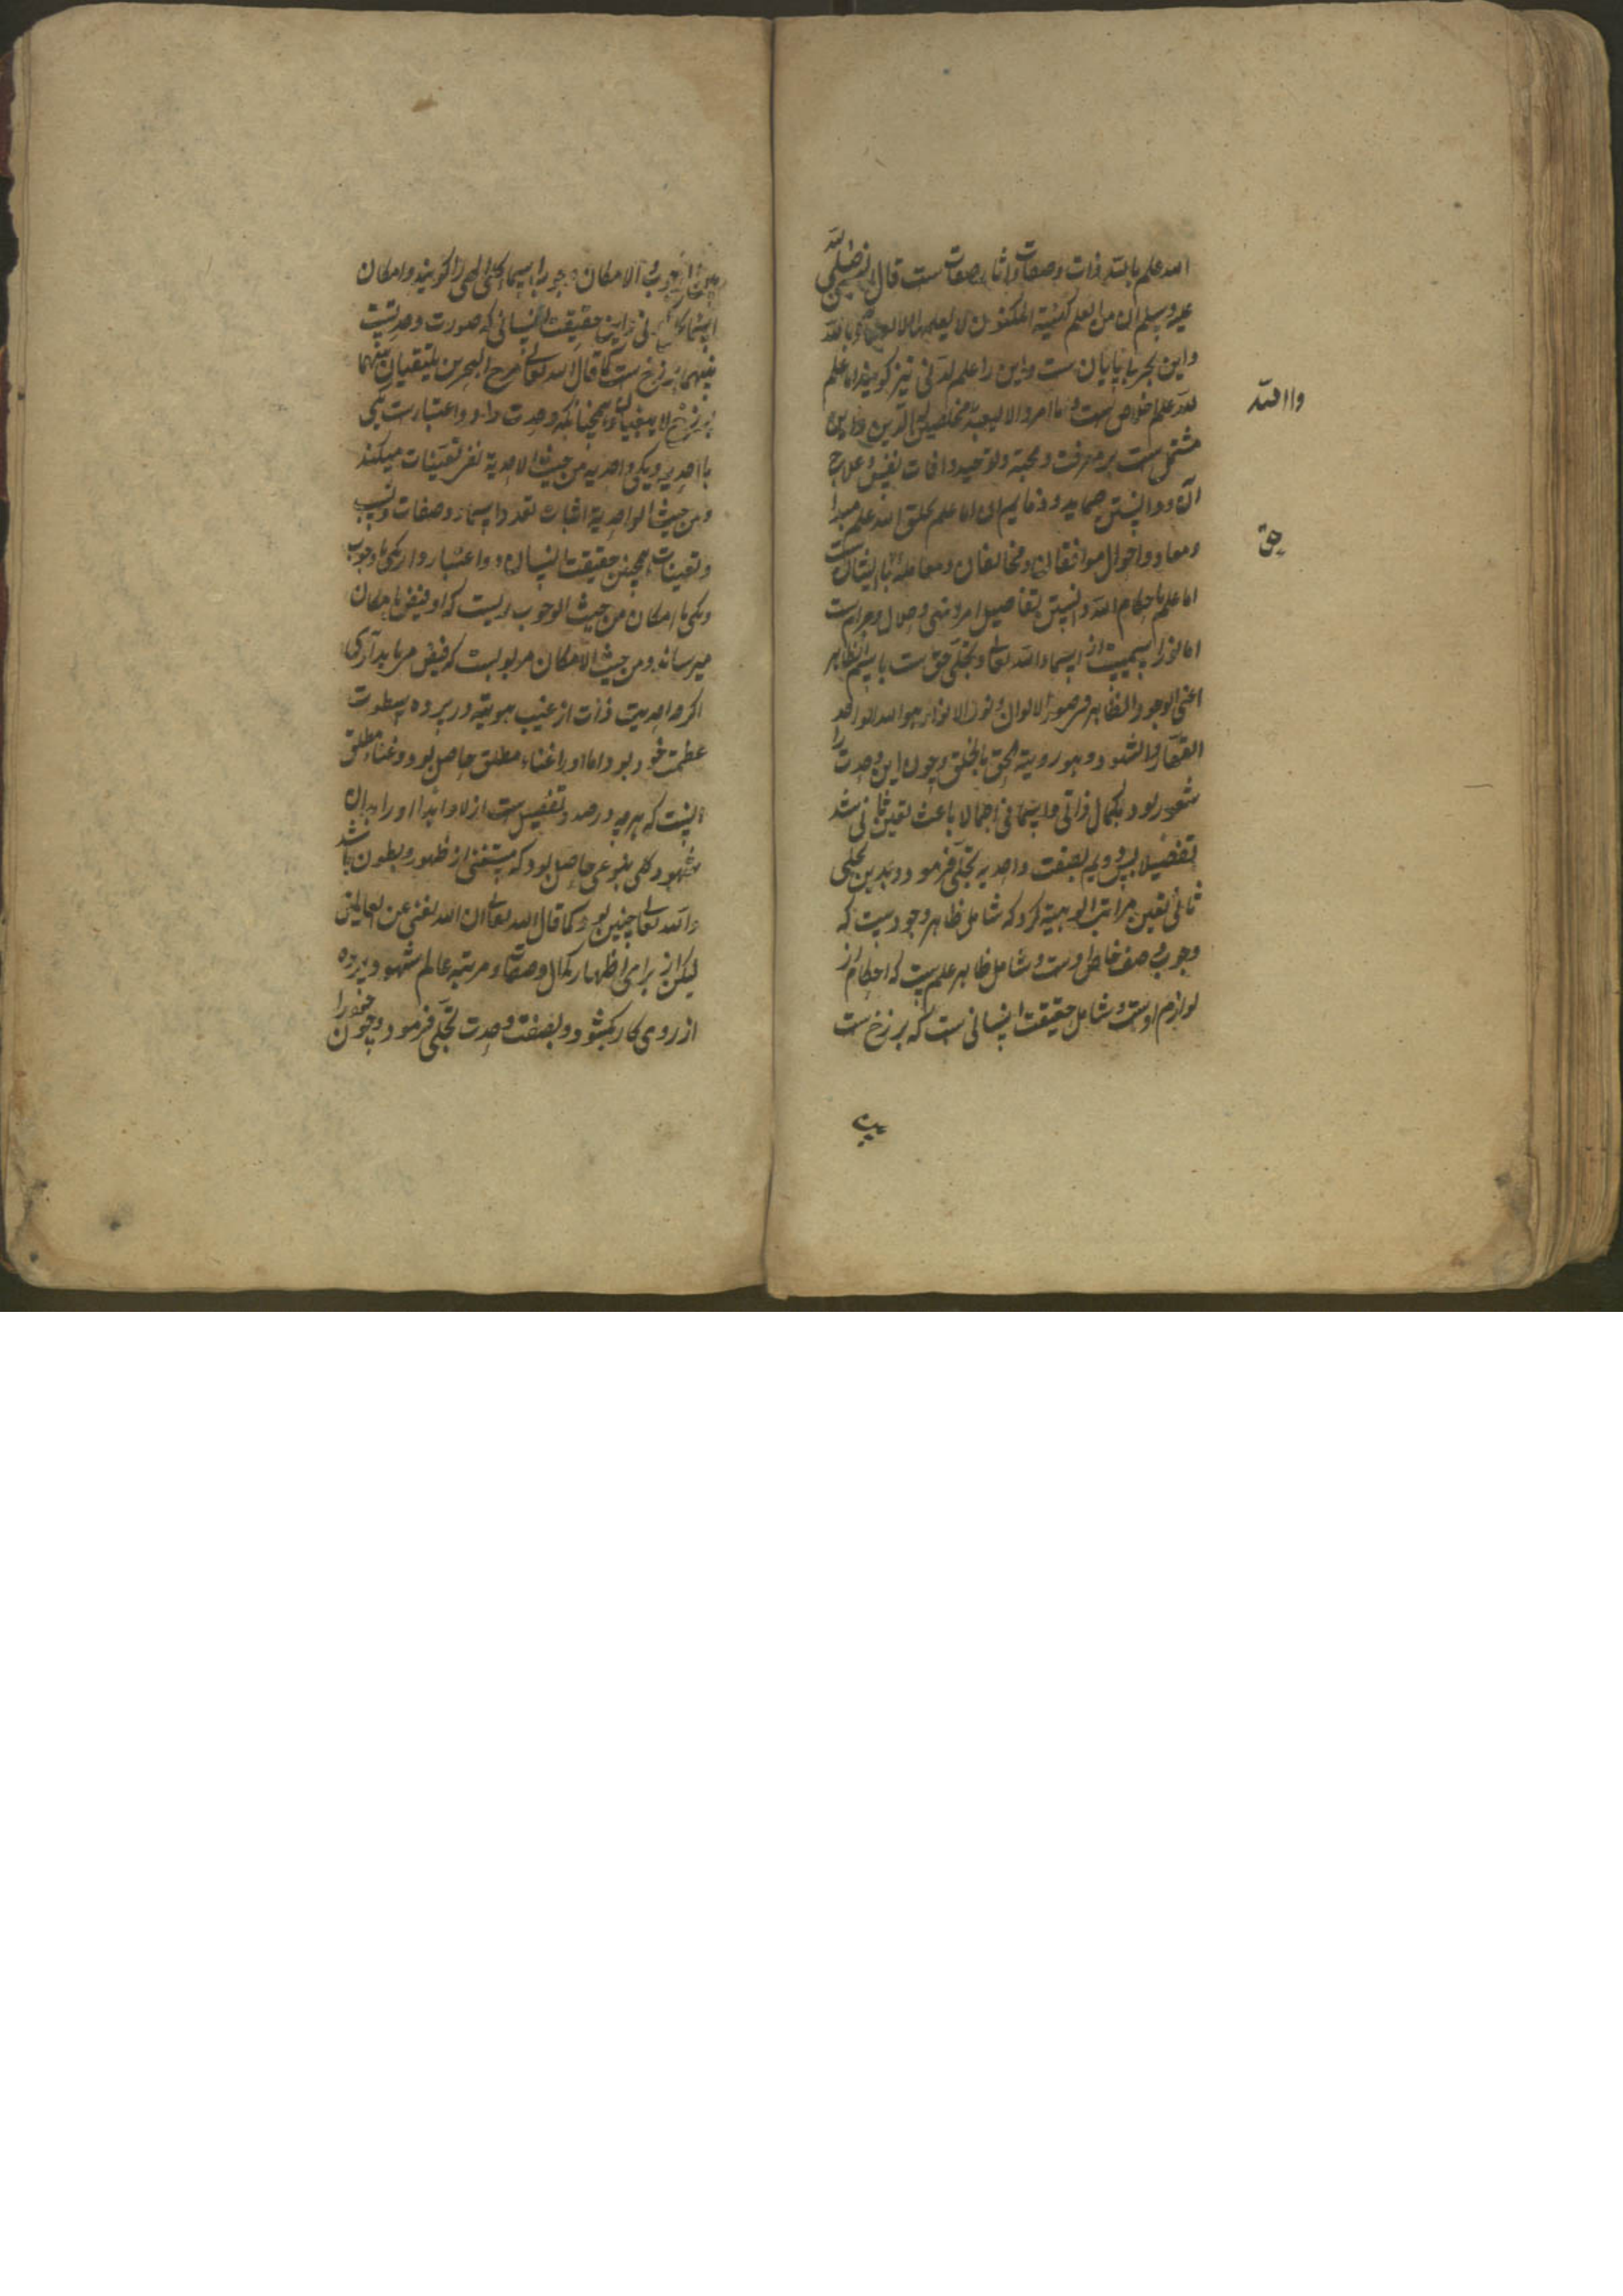 اما علم بالله ذات و صفات و اثار صفات ست قال النبی صلی الله
علیه و سلم ان من العلم کهیئة المکنون لا یعلمها الا العلماء بالله
و این بحر بی پایان ست و این را علم لدنی نیز گویند اما علم
لله علم اخلاص ست و ما امروا الا لیعبدوا الله مخلصین له الدین و این
مشتمل ست بر معرفت و محبة و توحید و افات نفس و علاج
آن و دانستن حمایم و ذمایم اما علم بخلق الله علم مبدا
و معاد و احوال موافقان و مخالفان و معامله با ایشان ست
اما علم باحکام الله دانستن تفاصیل امر و نهی و حلال و حرام ست
اما نور اسمیست از اسماء الله تعالی و تجلی حق ست باسم الظاهر
اعنی الوجود الظاهر فی صور الاکوان و نور الانوار هو الله الواحد
القهار اما شهود و هو رویة الحق بالحق و چون این وحدت را
شعور بود بکمال ذاتی و اسمائی اجمالا باعث تعین ثانی شد
تفصیلا بصفت واحدیه تجلی فرمود و بدین تجلی
ثانی تعین مراتب الوهیة کرد که شامل ظاهر وجودست که
وجوب وصف خاص اوست و شامل ظاهر علم ست که احکام از
لوازم اوست و شامل حقیقت انسانی ست که برزخ ست
بین
واا لله
حق
بین الوجوب و الامکان وجوب را اسماء کلی الهی را گویند و امکان
اسماء کیانی و این حقیقت انسانی که صورت وحدتست
بینهما برزخ ست کما قال الله تعالی مرج البحرین یلتقیان بینهما
برزخ لا یبغیان و همچنانکه وحدت را دو اعتبار ست یکی
با احدیه و یکی واحدیه من حیث الاحدیة نفی تعینات میکند
و من حیث الواحدیة اثبات تعدد اسماء و صفات و نسب
و تعینات همچنین حقیقت انسان دو اعتبار دارد یکی با وجوب
و یکی با امکان من حیث الوجوب ربیست که او فیض بامکان
میرساند و من حیث الامکان مربوبست که فیض می یابد آری
اگر واحدیت ذات از غیب هویته در پرده سطوت
عظمت خود بود اما او را غناء مطلق حاصل بود و غناء مطلق
آنست که هر چه در صدد تفصیل ست ازلا و ابدا او را بدان
شهود کلی بنوعی حاصل بود که مستغنی از ظهور و بطون باشد
والله تعالی چنین بود کما قال الله تعالی ان الله لغنی عن العالمین
لیکن از برای اظهار کمال وصفات و مرتبه عالم شهود پرده
از روی کار بگشود و بصفت وحدت تجلی فرمود و چون خود را